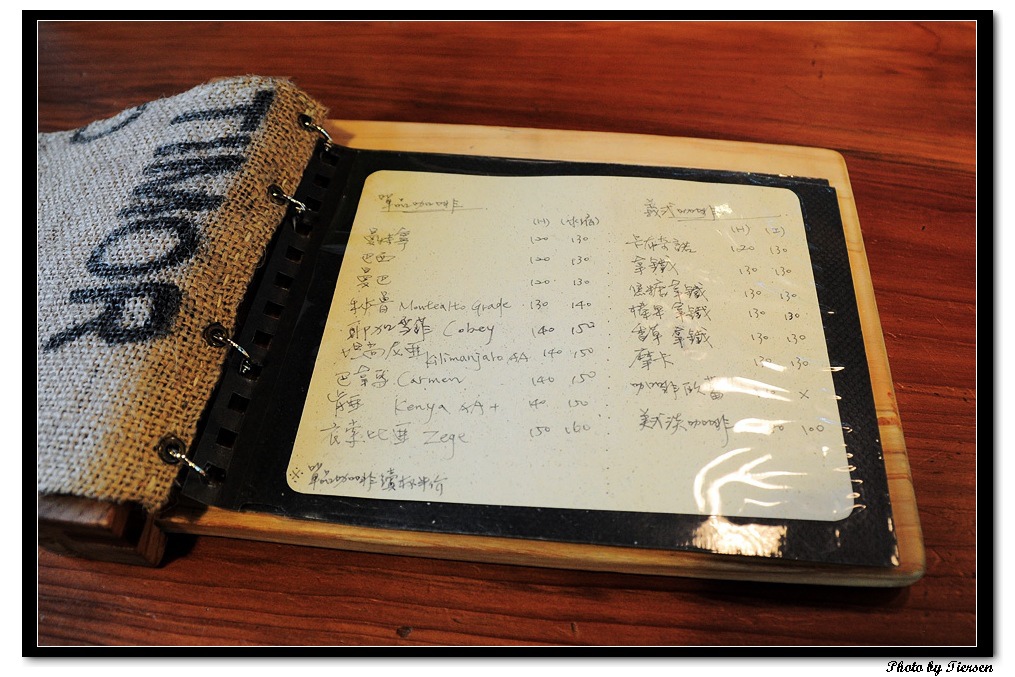 TIMOR
單品咖啡
(H) (冰滴)
曼特寧 120 130
巴西 120 130
曼巴 120 130
Montealto Grade 130 140
耶加雪菲 Cobey 140 150
坦尚尼亞 Kilimanjaro AA 140 150
巴拿馬 Carmen 140 150
Kenya AA+ 40 150
衣索比亞 Zege 150 160
※單品咖啡續杯半价
義式咖啡
(H) (I)
卡布奇諾 120 130
拿鐵 130 130
焦糖拿鐵 130 130
榛果拿鐵 130 130
香草拿鐵 130 130
摩卡 130 130
咖啡歐蕾 X
美式淡咖啡 100
Photo by Tiersen